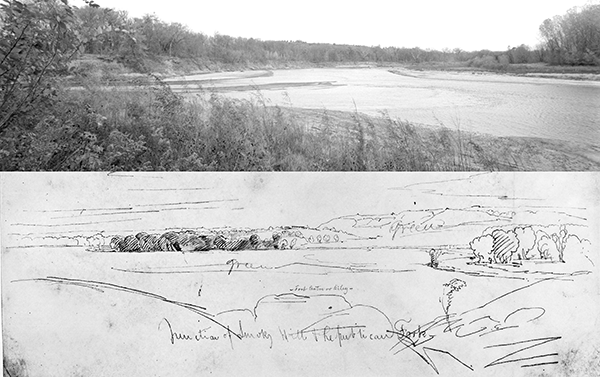 green
green
Fort Center or Riley
Junction of Smoky Hill & Republican Fork